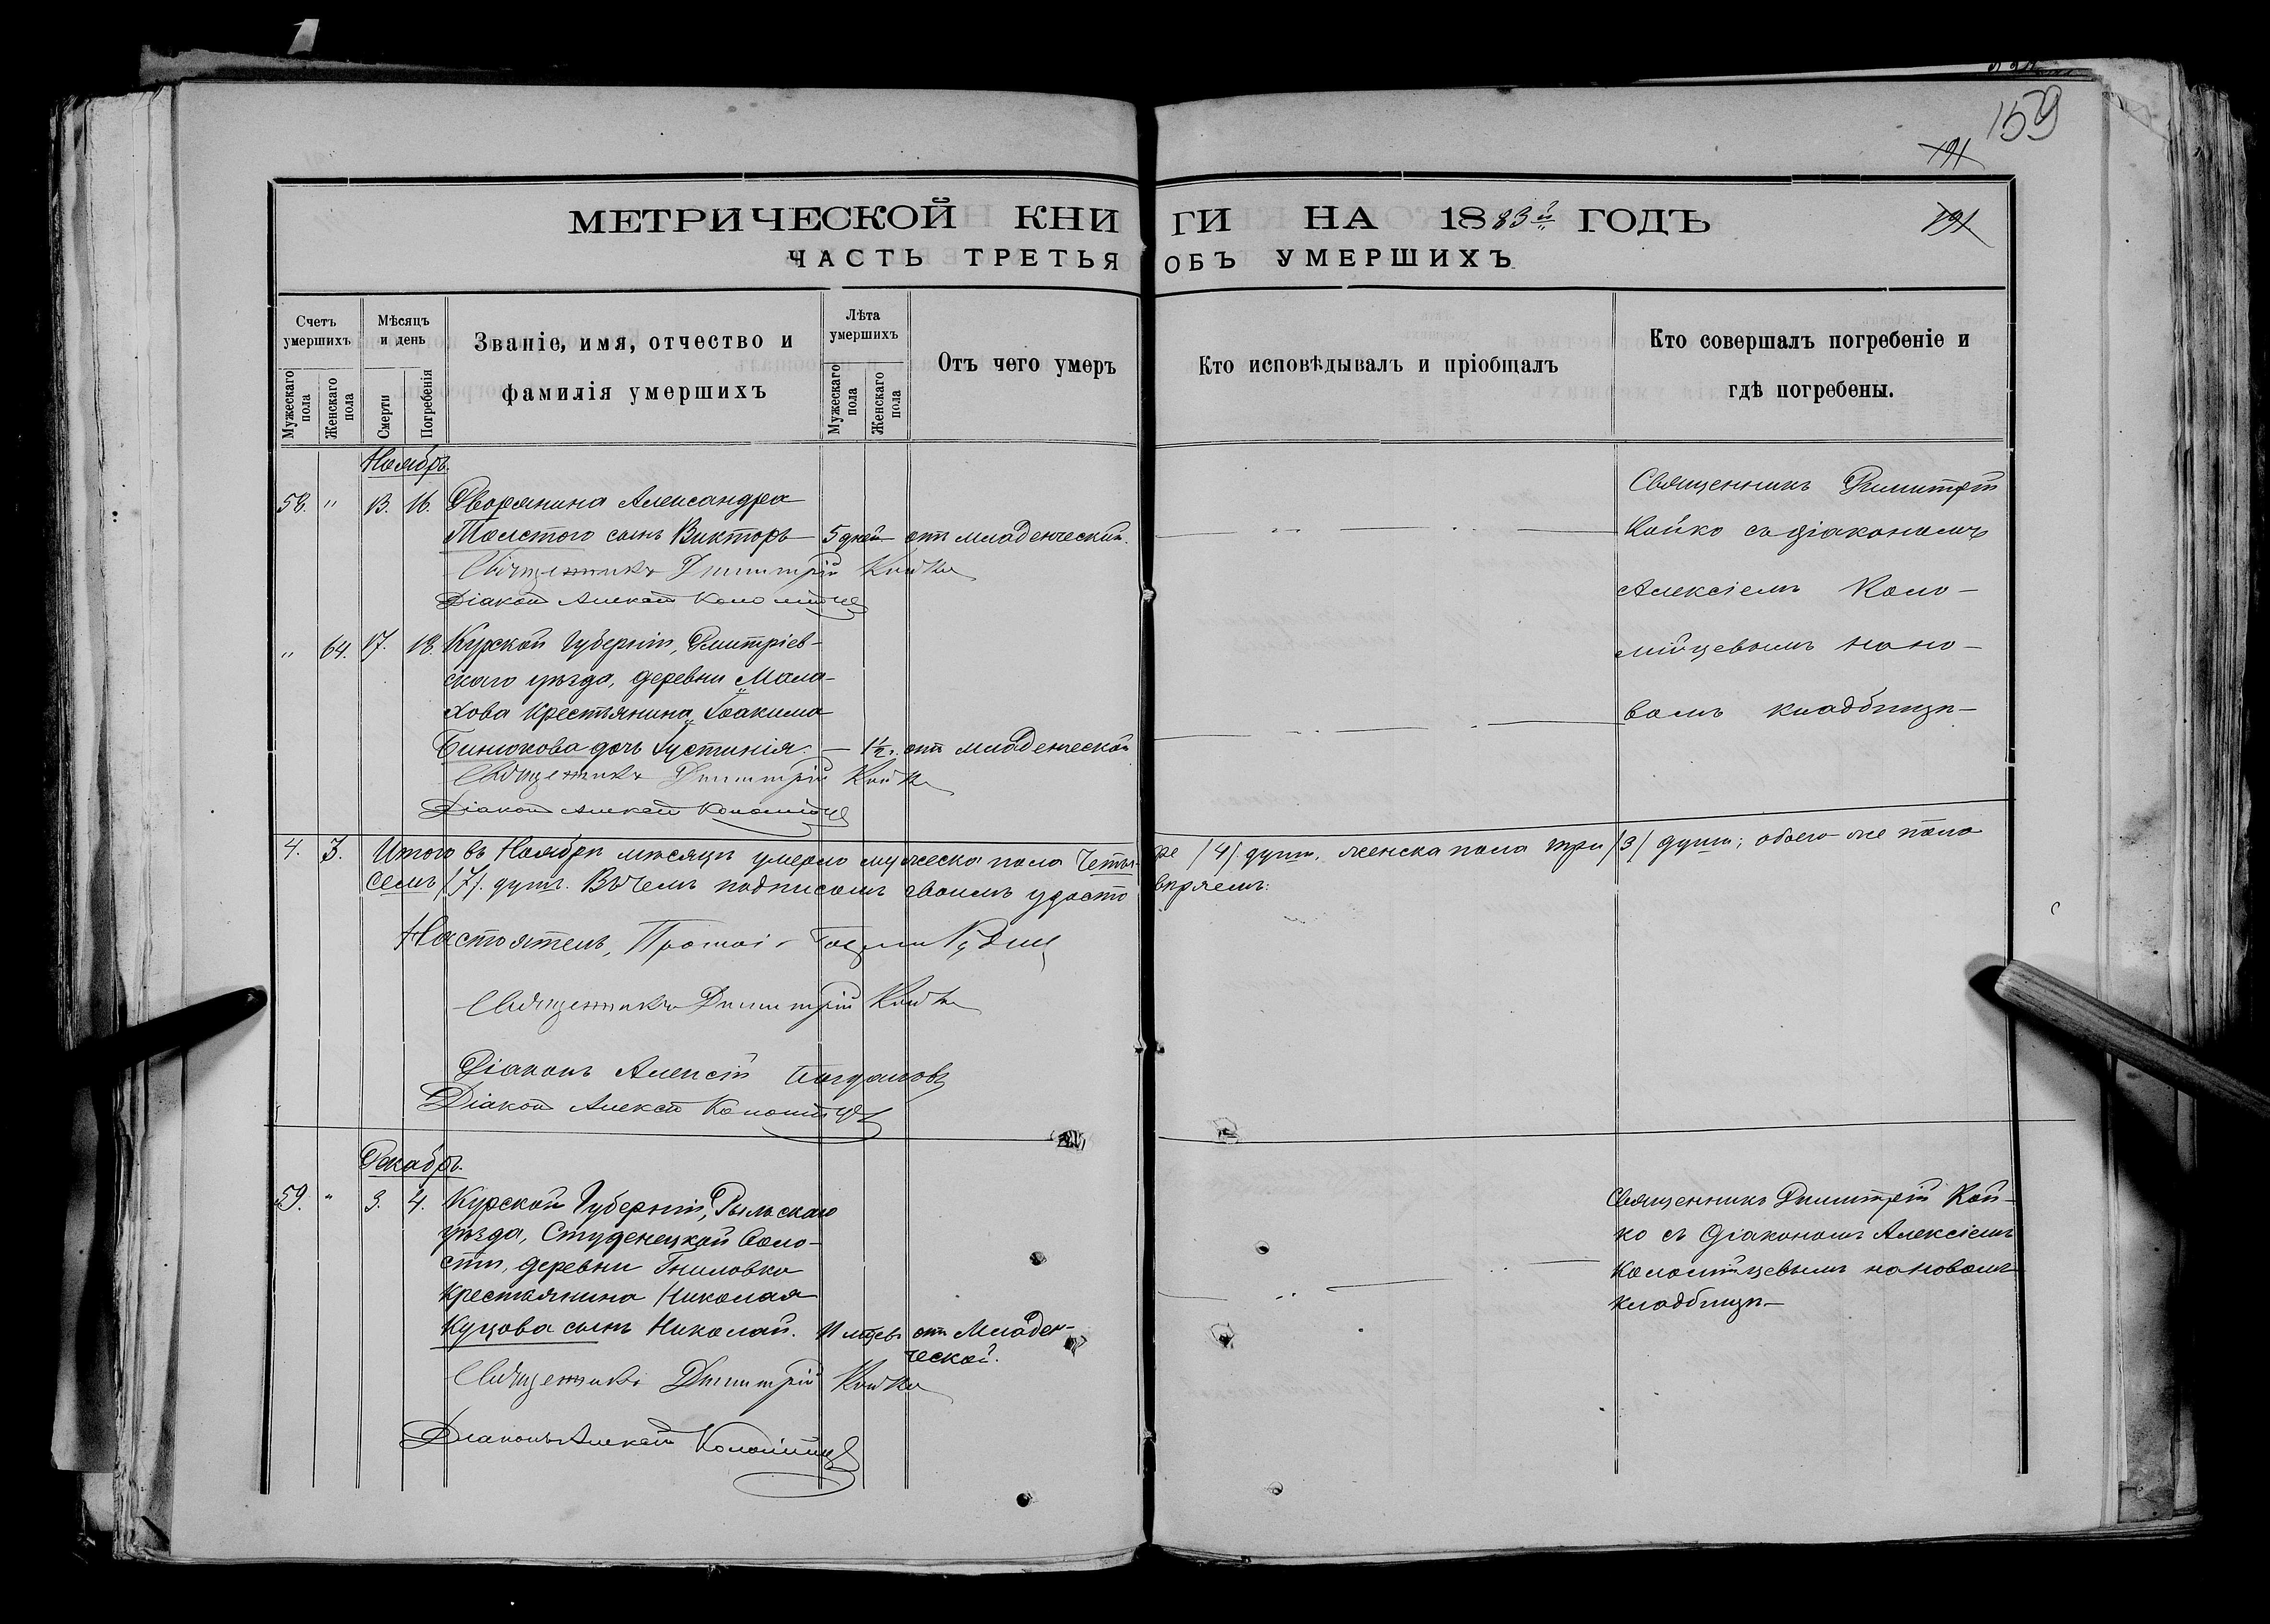 159
191
МЕТРИЧЕСКОЙ КНИГИ НА 1883й ГОДЪ
191
ЧАСТЬ ТРЕТЬЯ ОБЪ УМЕРШИХЪ
Счетъ умершихъ
Мужескаго пола
Женскаго пола
Мѣсяцъ и день
Смерти
Погребенія
Званіе, имя, отчество и
фамилія умершихъ
Лѣта умершихъ
Мужескаго пола
Женскаго пола
Отъ чего умеръ
Кто исповѣдывалъ и пріобщалъ
Кто совершалъ погребеніе и
гдѣ погребены.
Ноябрь.
58. " 13. 16. Дворянина Александра
Толстого сынъ Викторъ — 5 дней — отъ младенческой.
Священникъ Димитрій Койко
Діаконъ Алексѣй Коломійцев
Священникъ Димитрій
Койко съ діакономъ
Алексіемъ Коло-
мійцевымъ на но-
вомъ кладбищѣ—
" 64. 17. 18. Курской Губерніи, Дмитріев-
скаго уѣзда, деревни Мала-
хова Крестьянина Іоакима
Бинюкова дочь Іустинія. — 1½. отъ младенческой
Священникъ Димитрій Койко
Діаконъ Алексѣй Коломійцев
4. 3. Итого въ Ноябрѣ мѣсяцѣ умерло мужеска пола четыре /4/ душ, женска пола три /3/ души; обоего же пола
семь /7/ душъ. Въ чемъ подписомъ своимъ удостовѣряемъ:
Настоятель,
Священникъ Димитрій Койко
Діаконъ Алексѣй Богдановъ
Діаконъ Алексѣй Коломійцев
Декабрь.
59. " 3. 4. Курской Губерніи, Рыльскаго
уѣзда, Студенецкой Воло-
сти, деревни Гниловки
Крестьянина Николая
Куцова сынъ Николай. 11 мѣсцевъ отъ Младен-
ческой.
Священникъ Димитрій Койко
Діаконъ Алексѣй Коломійцев
Священникъ Димитрій Кой-
ко съ Діакономъ Алексіемъ
Коломійцевымъ на новомъ
кладбищѣ—